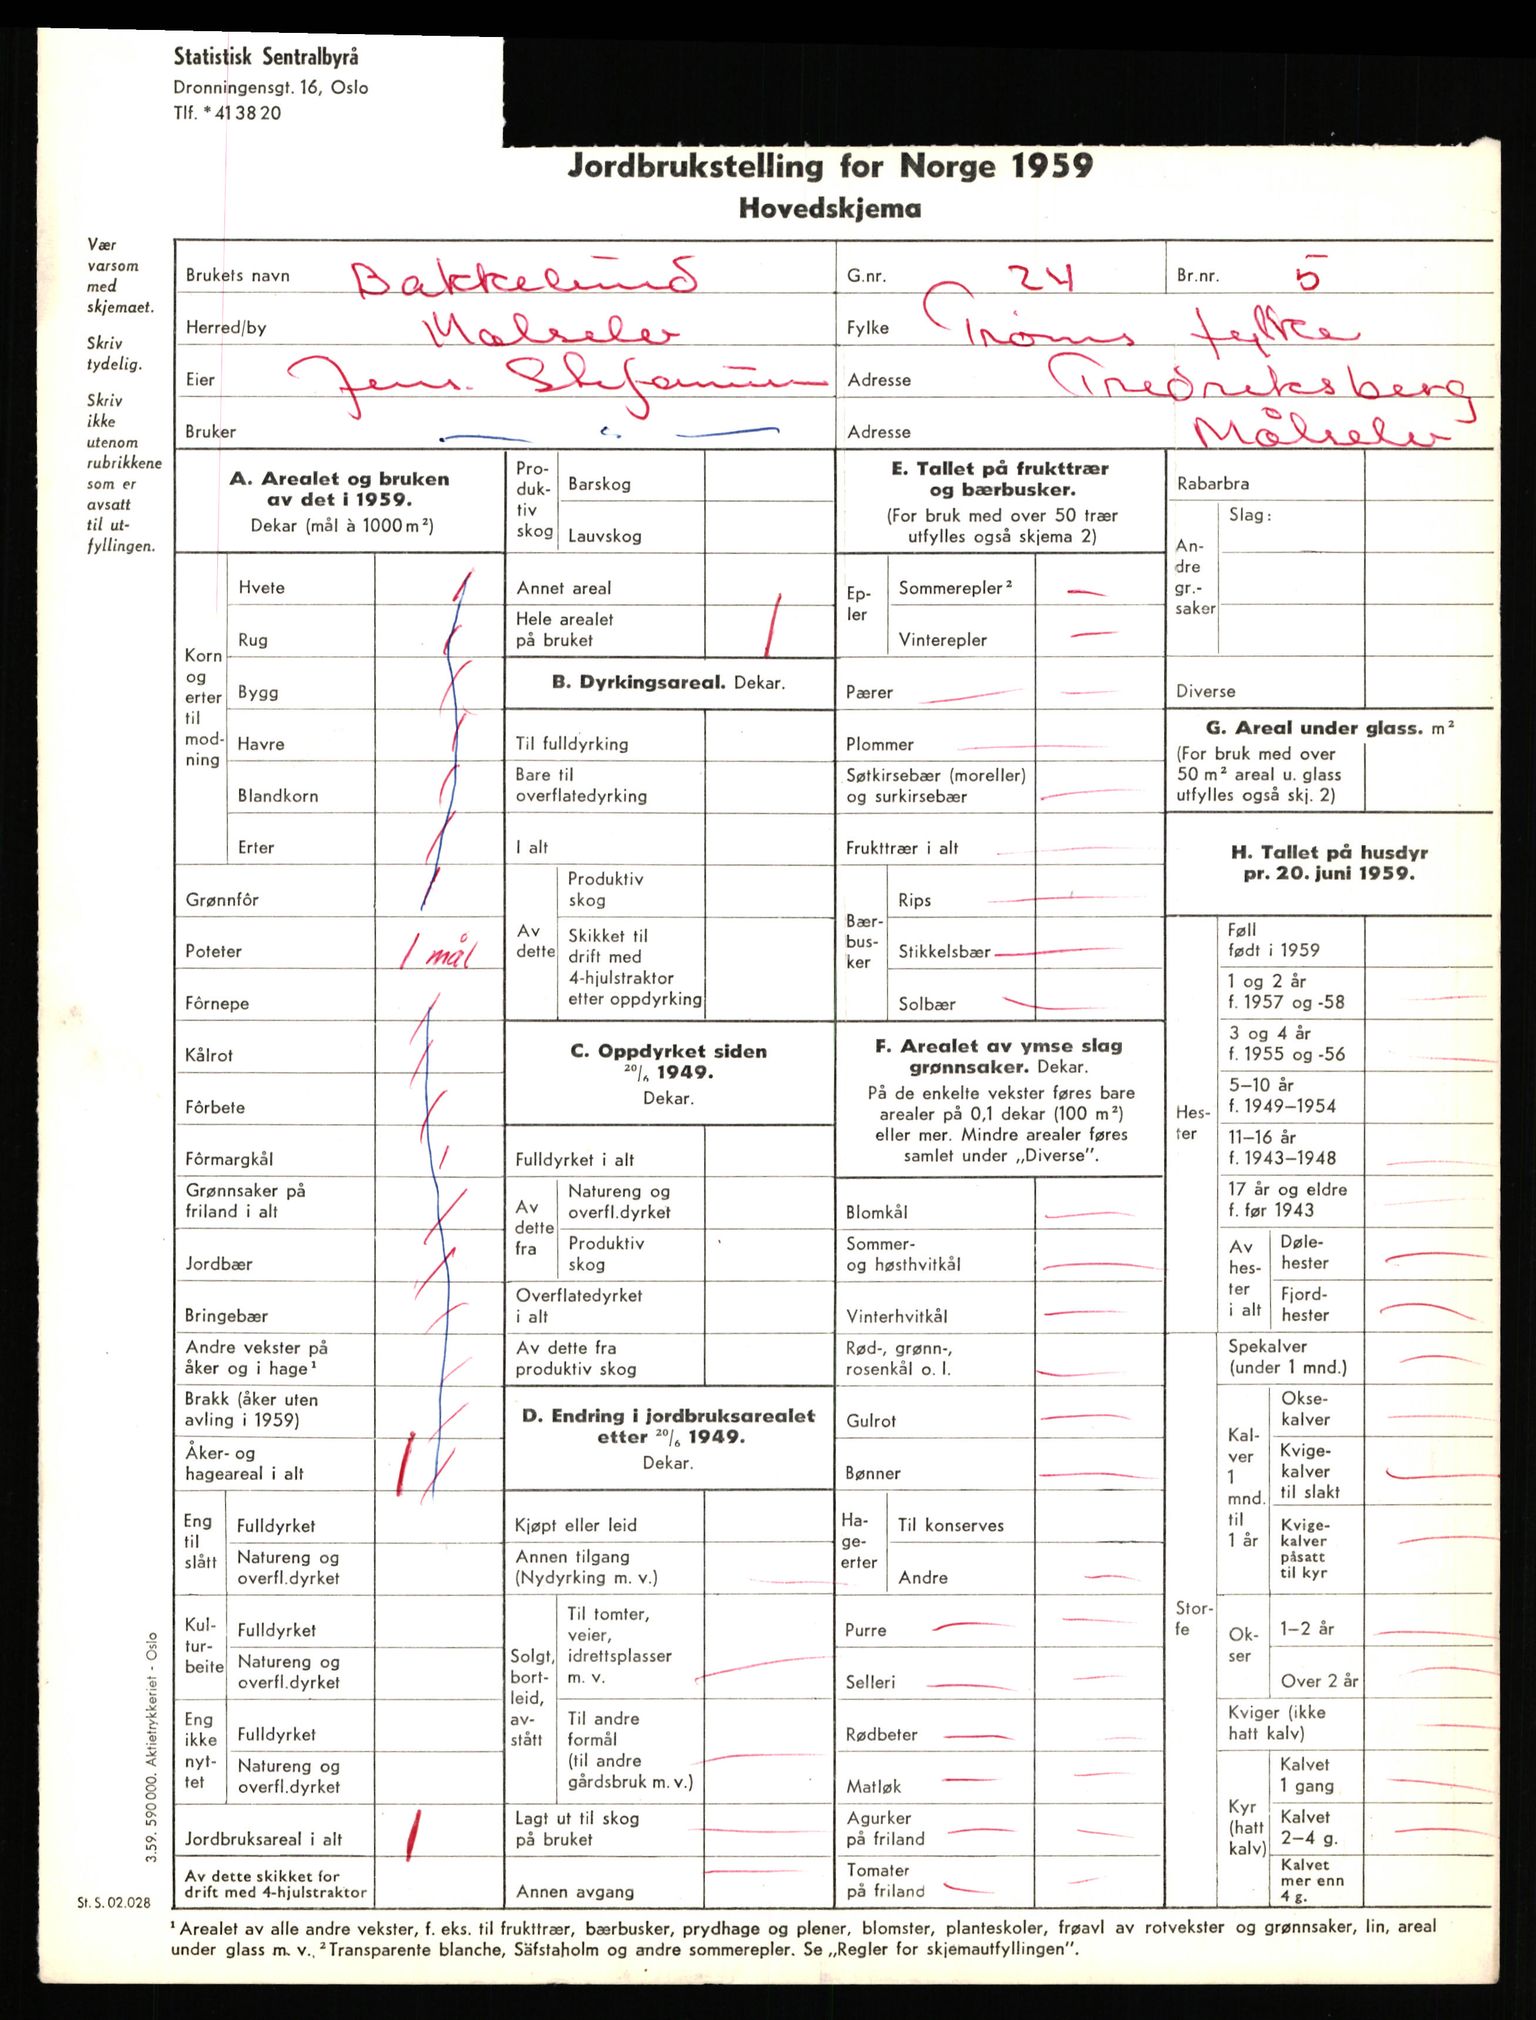 Statistisk Sentralbyrå
Dronningensgt. 16, Oslo
Tlf. * 41 38 20
Jordbrukstelling for Norge 1959
Hovedskjema
Vær
varsom
med
skjemaet.
Skriv
tydelig.
Skriv
ikke
utenom
rubrikkene
som er
avsatt
til ut-
fyllingen.
Brukets navn Bakkelund G.nr. 24 Br.nr. 5
Herred/by Målselv Fylke Troms fylke
Eier Jens. Adresse Fredriksberg
Bruker — " — Adresse Målselv
A. Arealet og bruken
av det i 1959.
Dekar (mål à 1000 m²)
Korn
og
erter
til
mod-
ning
Hvete
Rug
Bygg
Havre
Blandkorn
Erter
Grønnfôr
Poteter 1 mål
Fôrnepe
Kålrot
Fôrbete
Fôrmargkål
Grønnsaker på
friland i alt
Jordbær
Bringebær
Andre vekster på
åker og i hage¹
Brakk (åker uten
avling i 1959)
Åker- og
hageareal i alt 1
Eng
til
slått
Fulldyrket
Natureng og
overfl.dyrket
Kul-
tur-
beite
Fulldyrket
Natureng og
overfl.dyrket
Eng
ikke
nyt-
tet
Fulldyrket
Natureng og
overfl.dyrket
Jordbruksareal i alt 1
Av dette skikket for
drift med 4-hjulstraktor
Pro-
duk-
tiv
skog
Barskog
Lauvskog
Annet areal
Hele arealet
på bruket 1
B. Dyrkingsareal. Dekar.
Til fulldyrking
Bare til
overflatedyrking
I alt
Av
dette
Produktiv
skog
Skikket til
drift med
4-hjulstraktor
etter oppdyrking
C. Oppdyrket siden
20/6 1949.
Dekar.
Fulldyrket i alt
Av
dette
fra
Natureng og
overfl.dyrket
Produktiv
skog
Overflatedyrket
i alt
Av dette fra
produktiv skog
D. Endring i jordbruksarealet
etter 20/6 1949.
Dekar.
Kjøpt eller leid
Annen tilgang
(Nydyrking m. v.)
Solgt,
bort-
leid,
av-
stått
Til tomter,
veier,
idrettsplasser
m. v.
Til andre
formål
(til andre
gårdsbruk m. v.)
Lagt ut til skog
på bruket
Annen avgang
E. Tallet på frukttrær
og bærbusker.
(For bruk med over 50 trær
utfylles også skjema 2)
Ep-
ler
Sommerepler² —
Vinterepler —
Pærer — —
Plommer —
Søtkirsebær (moreller)
og surkirsebær —
Frukttrær i alt —
Bær-
bus-
ker
Rips —
Stikkelsbær —
Solbær —
F. Arealet av ymse slag
grønnsaker. Dekar.
På de enkelte vekster føres bare
arealer på 0,1 dekar (100 m²)
eller mer. Mindre arealer føres
samlet under „Diverse”.
Blomkål —
Sommer-
og høsthvitkål —
Vinterhvitkål —
Rød-, grønn-,
rosenkål o. l. —
Gulrot —
Bønner —
Ha-
ge-
erter
Til konserves
Andre —
Purre — —
Selleri — —
Rødbeter — —
Matløk — —
Agurker
på friland — —
Tomater
på friland — —
Rabarbra
An-
dre
gr.-
saker
Slag:
Diverse
G. Areal under glass. m²
(For bruk med over
50 m² areal u. glass
utfylles også skj. 2)
H. Tallet på husdyr
pr. 20. juni 1959.
Hes-
ter
Føll
født i 1959
1 og 2 år
f. 1957 og -58 —
3 og 4 år
f. 1955 og -56 —
5–10 år
f. 1949–1954
11–16 år
f. 1943–1948 —
17 år og eldre
f. før 1943 —
Av
hes-
ter
i alt
Døle-
hester —
Fjord-
hester —
Stor-
fe
Spekalver
(under 1 mnd.) —
Kal-
ver
1
mnd.
til
1 år
Okse-
kalver —
Kvige-
kalver
til slakt —
Kvige-
kalver
påsatt
til kyr —
Ok-
ser
1–2 år —
Over 2 år —
Kviger (ikke
hatt kalv) —
Kyr
(hatt
kalv)
Kalvet
1 gang —
Kalvet
2–4 g. —
Kalvet
mer enn
4 g.
3.59. 590 000. Aktietrykkeriet - Oslo
St. S. 02.028
¹ Arealet av alle andre vekster, f. eks. til frukttrær, bærbusker, prydhage og plener, blomster, planteskoler, frøavl av rotvekster og grønnsaker, lin, areal
under glass m. v. ² Transparente blanche, Säfstaholm og andre sommerepler. Se „Regler for skjemautfyllingen”.